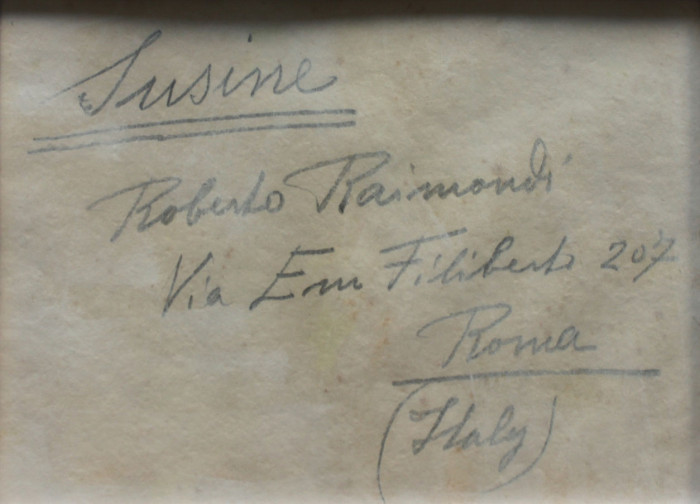 Susine
Roberto Raimondi
Via Em Filiberto 207
Roma
(Italy)